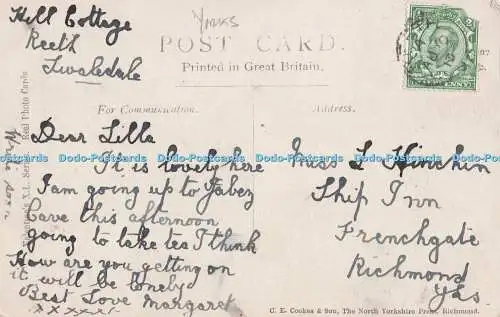 Hill Cottage
Reeth
Swaledale
Yorks
POST CARD.
Printed in Great Britain.
For Communication.
Address.
Dear Lilla
It is lovely here
I am going up to Jabez
Cave this afternoon
going to take tea I think
How are you getting on
it will be lonely
Best Love Margaret
x x x x x
Write soon
Miss L Hinchin
Ship Inn
Frenchgate
Richmond
Yks
Real Photo Cards
C. E. Cookes & Son, The North Yorkshire Press, Richmond.
Dodo-Postcards Dodo-Postcards Dodo-Postcards Dodo-Postcards